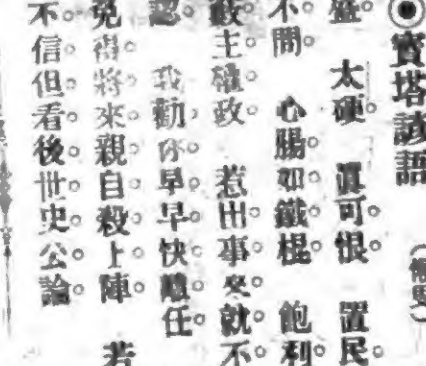 ◉寶塔詼語
盛。太硬。眞可恨。置民。
不問。心腸如鐵棍。飽利。
主權政。惹出事來就不。
認。我勸你早早快離任。
免得將來親自殺上陣。若
不信但看後世史公論。